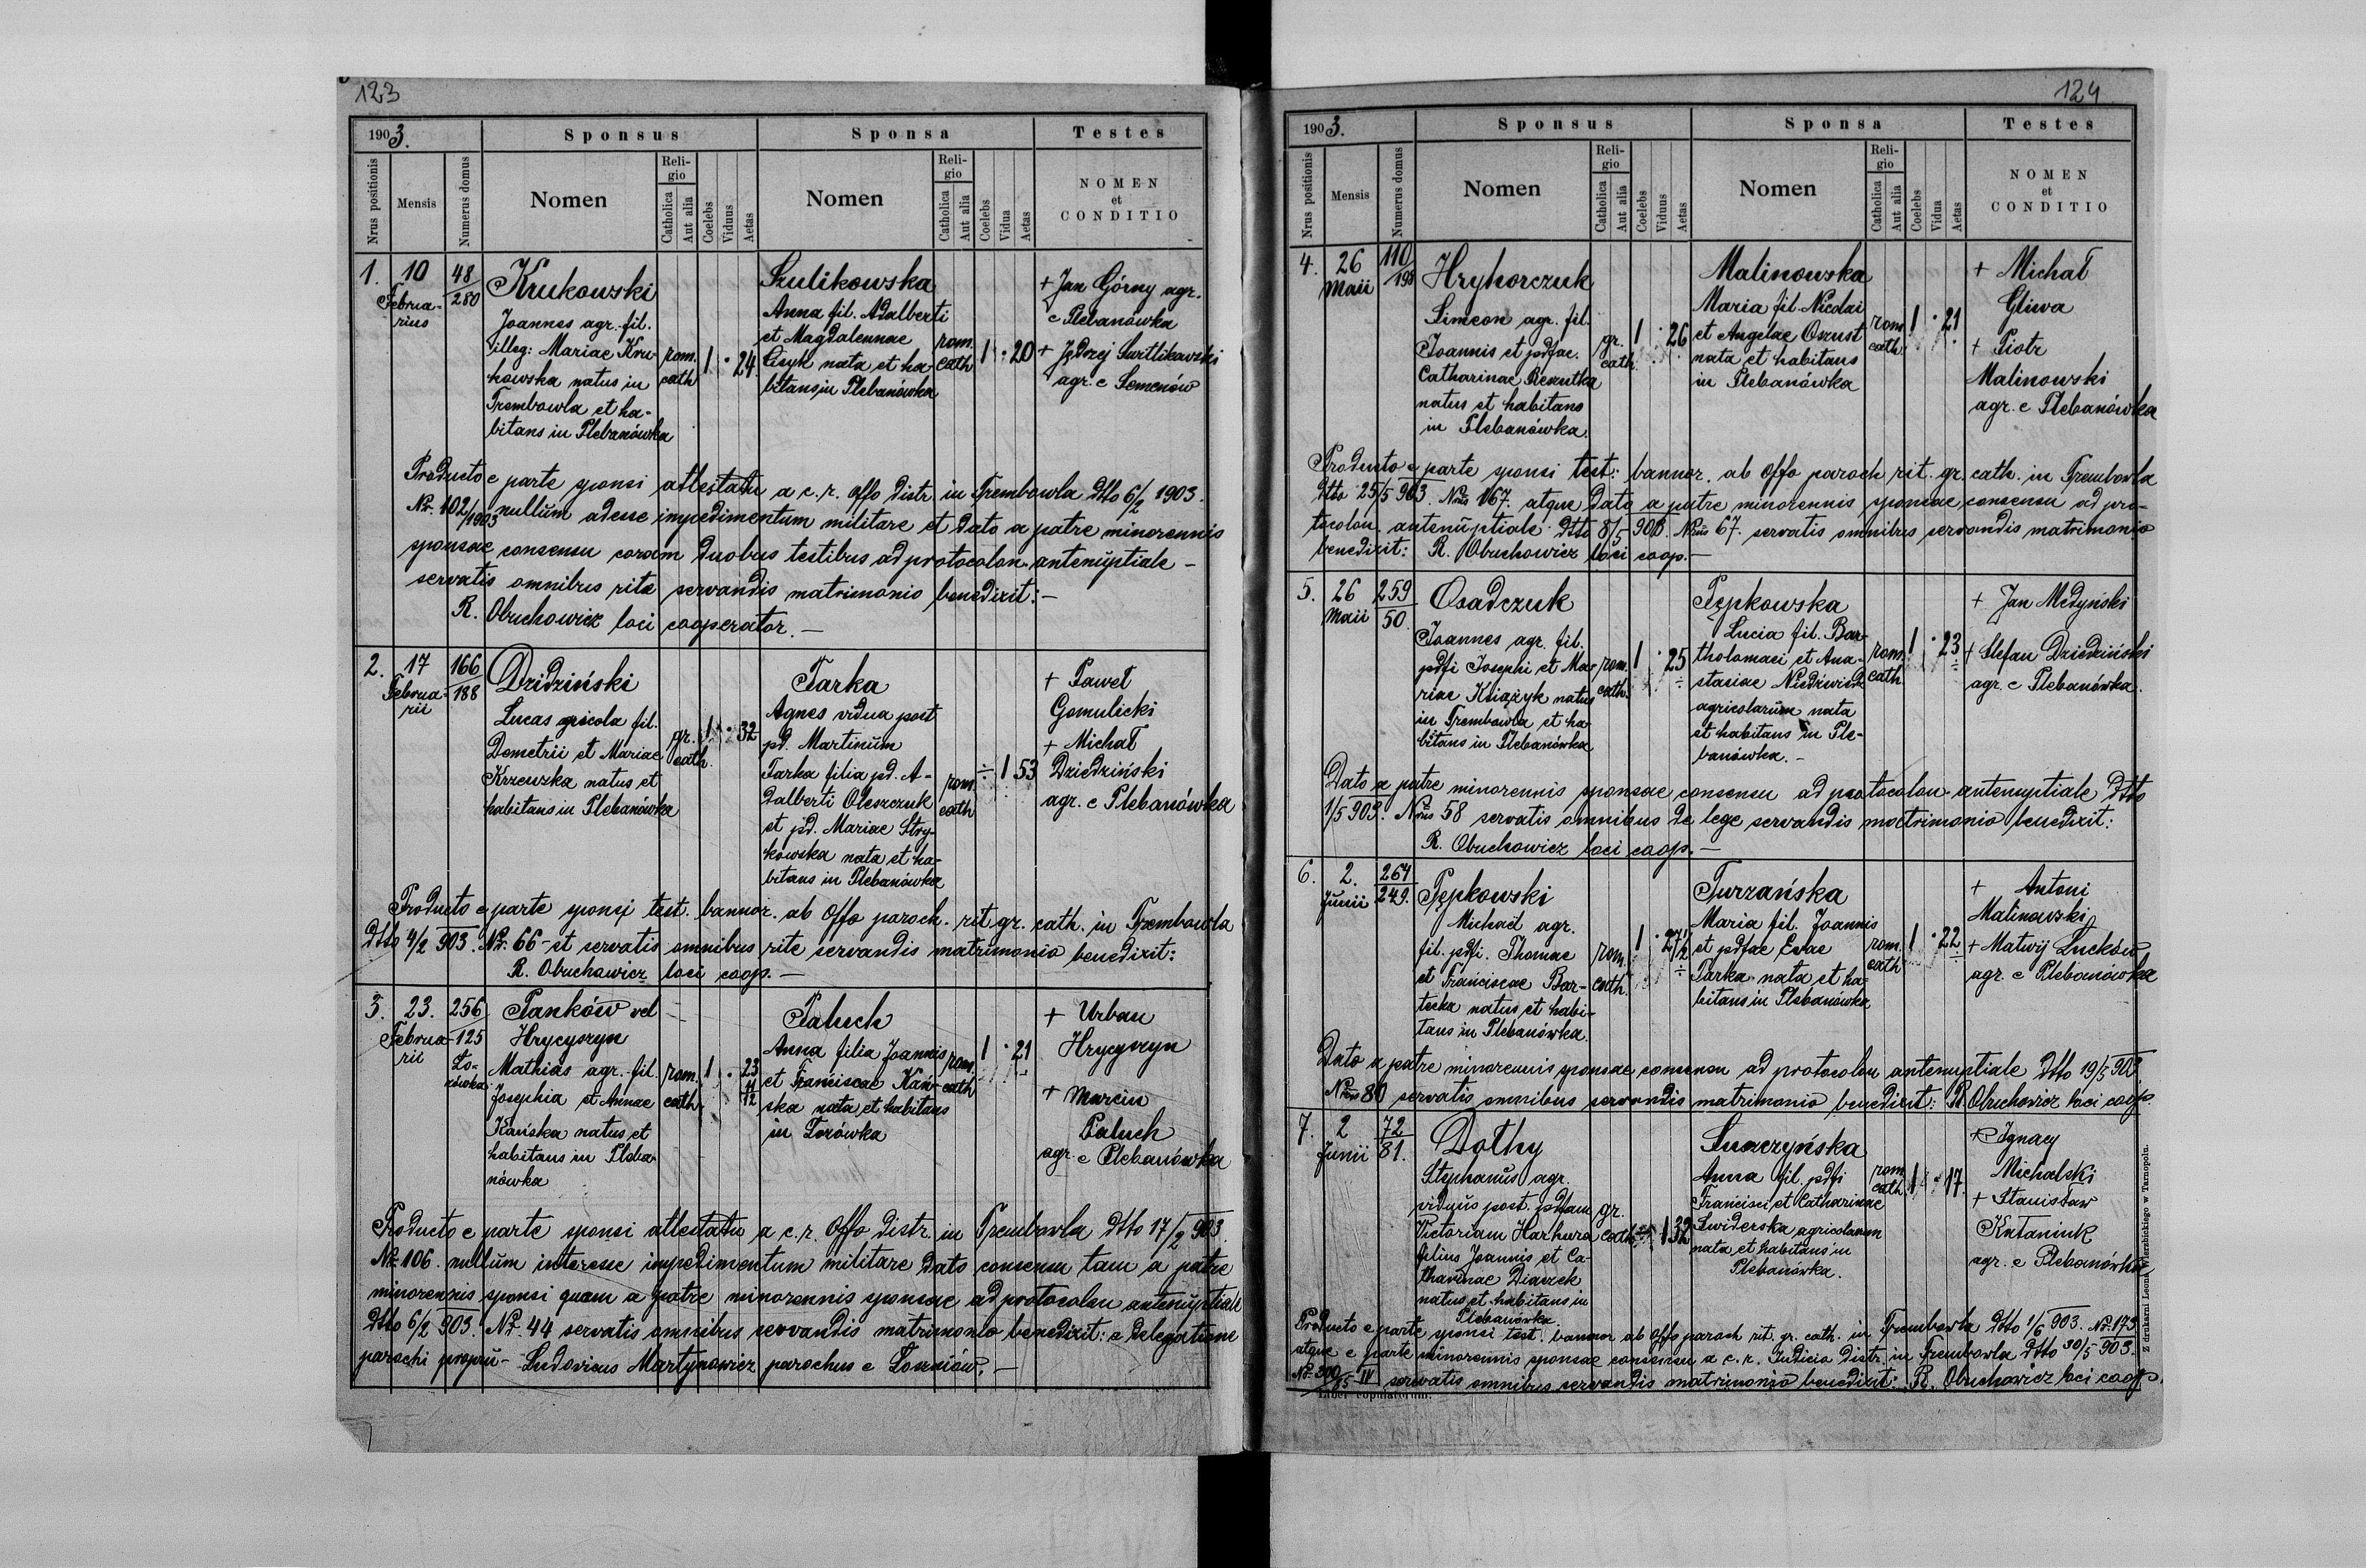 123
1903.
Sponsus
Sponsa
Testes
Nrus positionis
Mensis
Numerus domus
Nomen
Religio
Catholica
Aut alia
Coelebs
Viduus
Aetas
Nomen
Religio
Catholica
Aut alia
Coelebs
Vidua
Aetas
NOMEN
et
CONDITIO
1.
10
Februa-
rius
48
280
Krukowski
Joannes agr. fil.
illeg: Mariae Kru-
kowska natus in
Trembowla et ha-
bitans in Plebanówka
rom.
cath
1
24
Szulikowska
Anna fil. Adalberti
et Magdalennae
Cisyk nata et ha
bitans in Plebanówka
rom.
cath
1
20
+ Jan Górny agr.
e Plebanówka
+ Jędrzej
agr. e Semenów
Producto e parte sponsi attestatu a c. r. Offo distr. in Trembowla dtto 6/2 1903.
Nr. 102/1903 nullum adesse impedimentum militare et dato a patre minorennis
sponsae consensu coram duobus testibus ad protocolon antenuptiale -
servatis omnibus rite servandis matrimonio benedixit: -
R. Obuchowicz loci cooperator. -
2.
17
Februa-
rii
166
188
Dzidziński
Lucas agricola fil.
Demetrii et Mariae
Krzeuzka natus et
habitans in Plebanówka
gr.
cath.
1
32
Tarka
Agnes vidua post
pd. Martinum
Tarka filia pd. A-
dalberti Oleszczuk
et pd. Mariae Stry-
kowska nata et ha-
bitans in Plebanówka
rom.
cath
1
53
+ Paweł
Gomulicki
+ Michał
Dziedziński
agr. e Plebanówka
Producto e parte sponsi test. bannor. ab Offo paroch. rit gr. cath. in Trembowla
dtto 4/2 903. Nr. 66 - et servatis omnibus rite servandis matrimonio benedixit:
R. Obuchowicz loci coop. -
3.
23.
Februa-
rii
256
125
Ło-
zówka
Panków vel
Hrycyszyn
Mathias agr. fil.
Josephia et Annae
Kańska natus et
habitans in Pleba
nówka
rom.
cath.
1
23
11
12
Paluch
Anna filia Joannis
et Franciscae Kań-
ska nata et habitans
in Łozówka
rom.
cath
1
21
+ Urban
Hrycyszyn
+ Marcin
Paluch
agr. e Plebanówka
Producto e parte sponsi attestatu a c. r. Offo distr. in Trembowla dtto 17/2 903.
Nr. 106. nullum interesse impedimentum militare dato consensu tam a patre
minorennis sponsi quam a patre minorennis sponsae ad protocolon antenuptiale
dtto 6/2 903. Nr. 44 servatis omnibus servandis matrimonio benedixit: e delegatione
parochi proprii - Ludovicus Martynowicz parochus e Łoszniów. -
124
1903.
Sponsus
Sponsa
Testes
Nrus positionis
Mensis
Numerus domus
Nomen
Religio
Catholica
Aut alia
Coelebs
Viduus
Aetas
Nomen
Religio
Catholica
Aut alia
Coelebs
Vidua
Aetas
NOMEN
et
CONDITIO
4.
26
Maii
110
198
Hryhorczuk
Simeon agr. fil.
Joannis et pdfae.
Catharinae Reszutka
natus et habitans
in Plebanówka.
gr.
cath.
1
26
Malinowska
Maria fil. Nicolai
et Angelae Oszust
nata et habitans
in Plebanówka
rom.
cath.
1
21
+ Michał
Gliwa
+ Piotr
Malinowski
agr. e Plebanówka
Producto e parte sponsi test: bannor. ab Offo paroch rit. gr. cath. in Trembowla
dtto 25/5 903. Nrus 167. atque dato a patre minorennis sponsae consensu ad pro-
tocolon antenuptiale dtto 8/5 903. Nrus 67. servatis omnibus servandis matrimonio
benedixit: R. Obuchowicz loci coop. -
5.
26
Maii
259
50
Osadczuk
Joannes agr. fil.
pdfi Josephi et Ma-
riae Książyk natus
in Trembowla et ha-
bitans in Plebanówka
rom.
cath.
1
25
Pępkowska
Lucia fil. Bar-
tholomaei et Ana-
stasiae Niedźwiedź
agricolarum nata
et habitans in Ple-
banówka. -
rom.
cath
1
23
+ Jan Medyński
+ Stefan Dziedziński
agr. e Plebanówka.
Dato a patre minorennis sponsae consensu ad protocolon antenuptiale dtto
1/5 903. Nrus 58 servatis omnibus de lege servandis matrimonio benedixit:
R. Obuchowicz loci coop. -
6.
2.
Junii
264
249.
Pępkowski
Michael agr.
fil. pdfi. Thomae
et Franciscae Bar-
tecka natus et habi-
tans in Plebanówka.
rom.
cath.
1
27 1/2
Turzańska
Maria fil. Joannis
et pdfae Evae
Tarka nata et ha-
bitans in Plebanówka
rom.
cath
1
22
+ Antoni
Malinowski
+ Matwij Łucków
agr. e Plebanówka
Dato a patre minorennis sponsae consensu ad protocolon antenuptiale dtto 19/5 903.
Nrus 80 servatis omnibus servandis matrimonio benedixit: R. Obuchowicz loci coop.
7.
2
Junii
72
81.
Dołhy
Stephanus agr.
viduus post. pdtam
Victoriam Harhura
filius Joannis et Ca-
tharinae Diaczek
natus et habitans in
Plebanówka.
gr.
cath.
1
32
Suszczyńska
Anna fil. pdfi
Francisci et Catharinae
Świderska agricolarum
nata et habitans in
Plebanówka.
rom.
cath.
1
17.
+ Ignacy
Michalski
+ Stanisław
Kutaniuk
agr. e Plebanówka
Producto e parte sponsi test. bannor ab Offo paroch rit. gr. cath. in Trembowla dtto 1/6 903. Nr. 173
atque e parte minorennis sponsae consensu a c. r. Judicio distr. in Trembowla dtto 30/5 903.
servatis omnibus servandis matrimonio benedixit: R. Obuchowicz loci coop.
Liber copulatorum.
Z drukarni Leona Wierzbickiego w Tarnopolu.